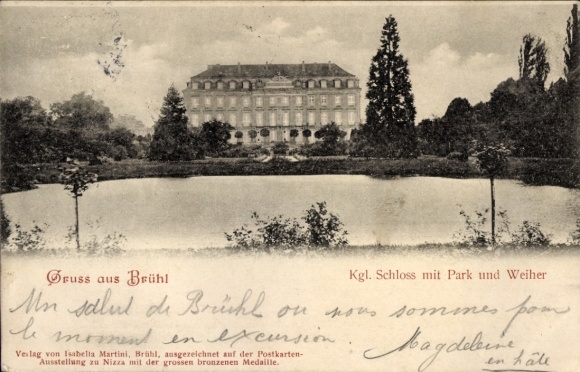 Gruss aus Brühl
Kgl. Schloss mit Park und Weiher
Un salut de Brühl ou nous sommes pour
le moment en excursion
Magdeleine
en hâte
Verlag von Isabella Martini, Brühl, ausgezeichnet auf der Postkarten-
Ausstellung zu Nizza mit der grossen bronzenen Medaille.